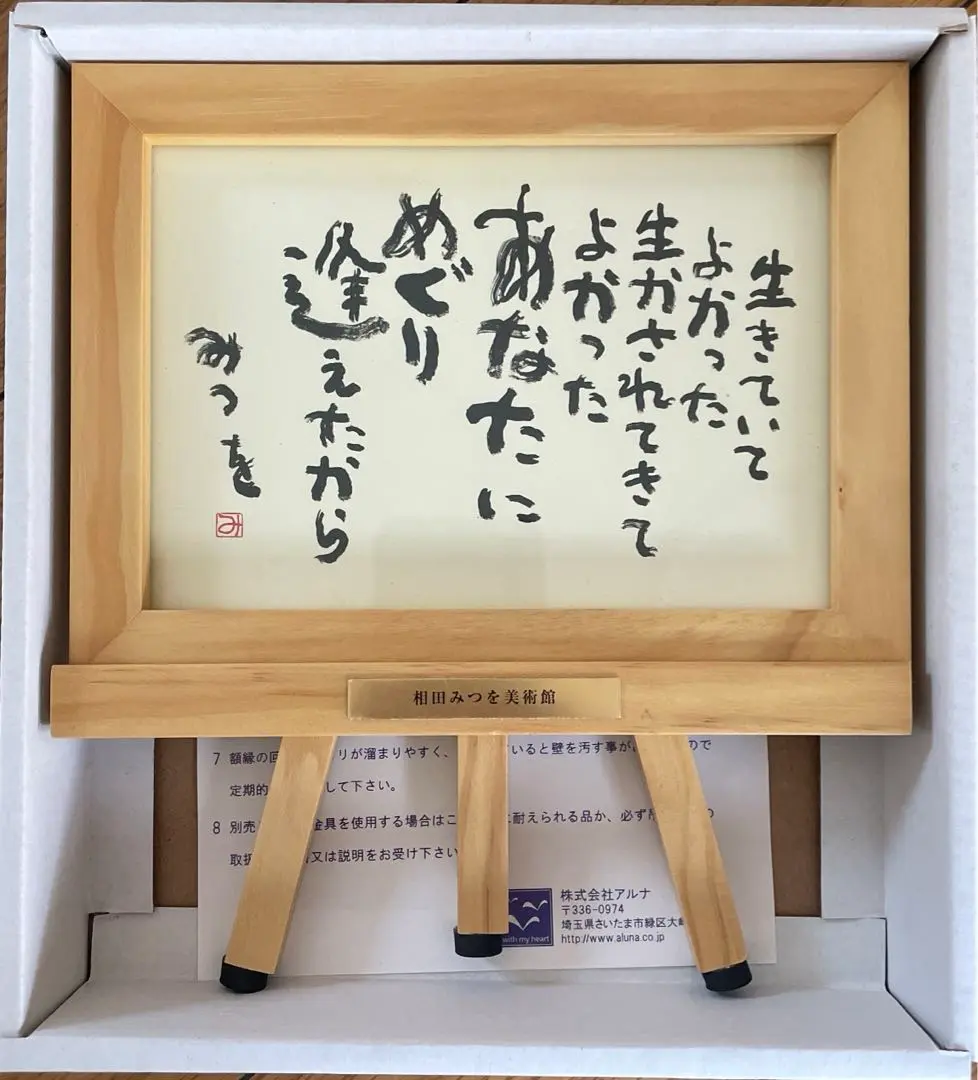 生きていて
よかった
生かされてきて
よかった
あなたに
めぐり
逢えたから
みつを
み
相田みつを美術館
7 額縁の回 リが溜まりやすく、 いると壁を汚す事が ので
定期的 して下さい。
8 別売 金具を使用する場合はこ に耐えられる品か、必ず の
取扱 又は説明をお受け下さい
with my heart
株式会社アルナ
〒336-0974
埼玉県さいたま市緑区大崎
http://www.aluna.co.jp